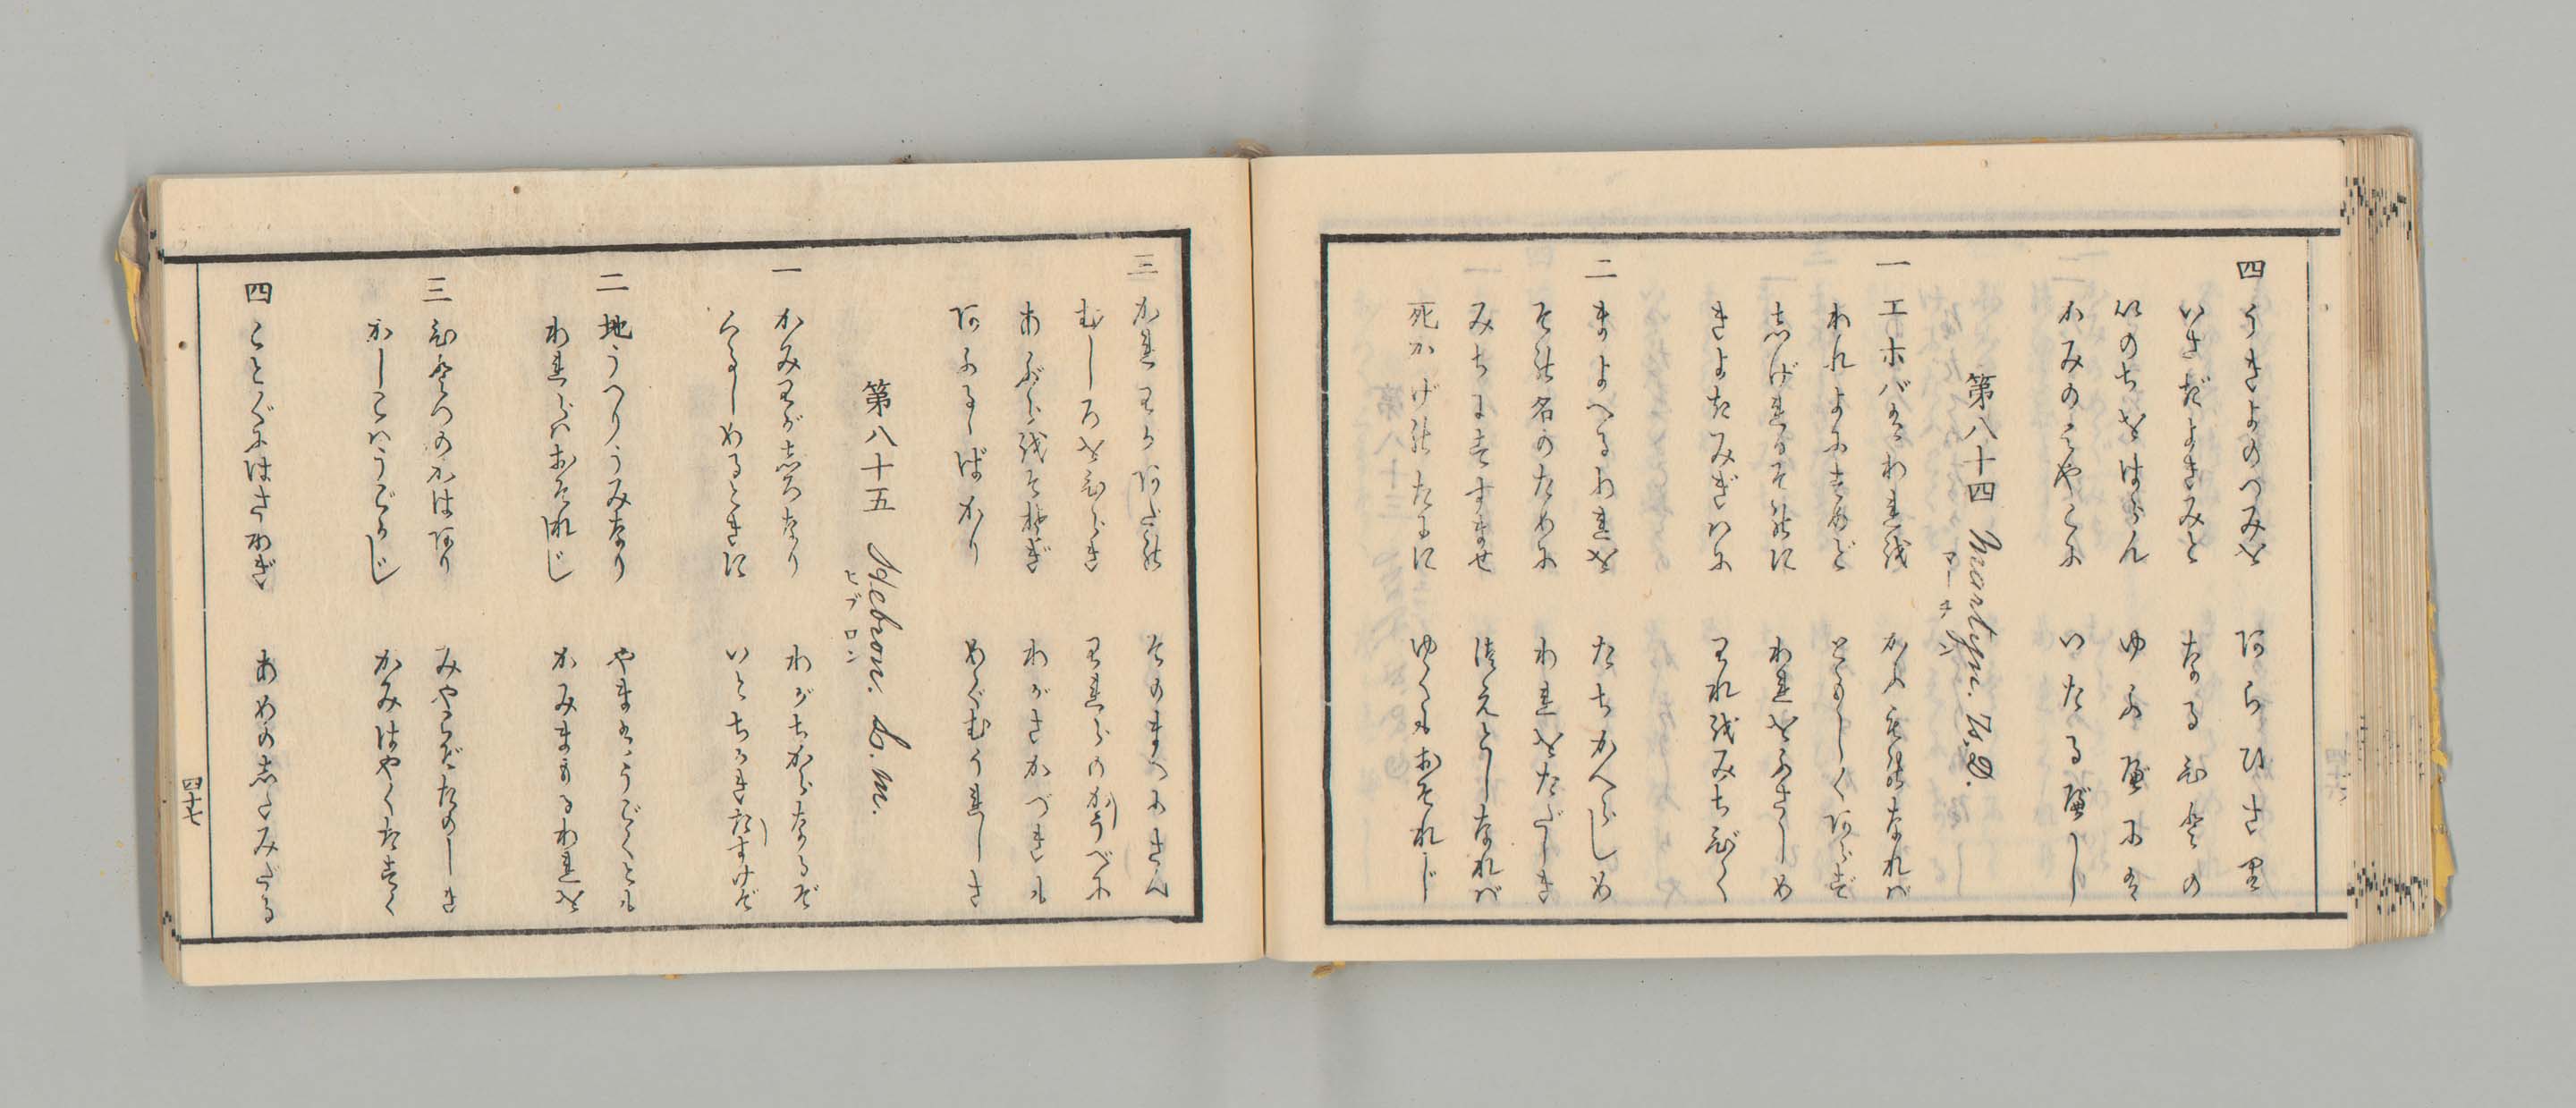 四 うきよのつみを あらひさり
いさぎよきみと なるひとの
いのちをはらん ゆふべには
かみのみやこに いたるべし
第八十四 Martyn. 7,s.
マーチン
一 エホバはわれを かふものなれば
われよにすめど ともしくあらず
志げれるそのに われをふさしめ
きよきみぎはに われをみちびく
二 まよへるわれを たちかへらしめ
その名のために われをたゞしき
みちにすゝませ 給へとしなれば
死かげのたにに ゆくもおそれじ
三 かれわがあだの そのまへにさへ
むしろをひらき われらのかうべに
あぶらをそゝぎ わがさかづきも
あふるゝばかり めぐむうれしさ
第八十五 Hebron. L. M.
ヒブロン
一 かみわがしろなり わがちからなるぞ
くるしめるときに いとちかきたすけぞ
二 地うへりうみなり やまはうごくとも
われらはおそれじ かみまもるわれを
三 ひとつのかはあり みやこぞたのしき
かしこはうごかじ かみはやくたすく
四 ことくにはさわぎ あめの志たみだる
四十七